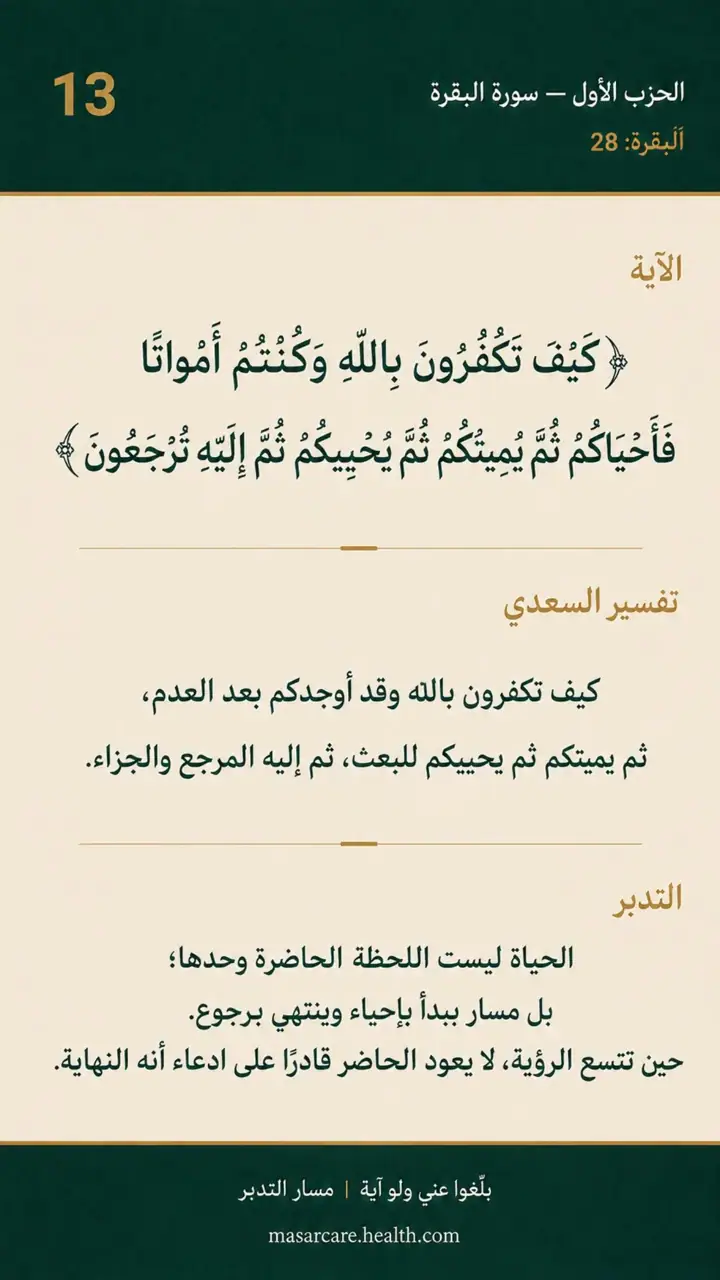 13
الحزب الأول — سورة البقرة
اَلْبقرة: 28
الآية
﴿كَيْفَ تَكْفُرُونَ بِاللّهِ وَكُنْتُمْ أَمْواتًا
فَأَحْيَاكُمْ ثُمَّ يُمِيتُكُمْ ثُمَّ يُحْيِيكُمْ ثُمَّ إِلَيّهِ تُرْجَعُونَ﴾
تفسير السعدي
كيف تكفرون بالله وقد أوجدكم بعد العدم،
ثم يميتكم ثم يحييكم للبعث، ثم إليه المرجع والجزاء.
التدبر
الحياة ليست اللحظة الحاضرة وحدها؛
بل مسار ببدأ بإحياء وينتهي برجوع.
حين تتسع الرؤية، لا يعود الحاضر قادرًا على ادعاء أنه النهاية.
بلّغوا عني ولو آية | مسار التدبر
masarcare.health.com